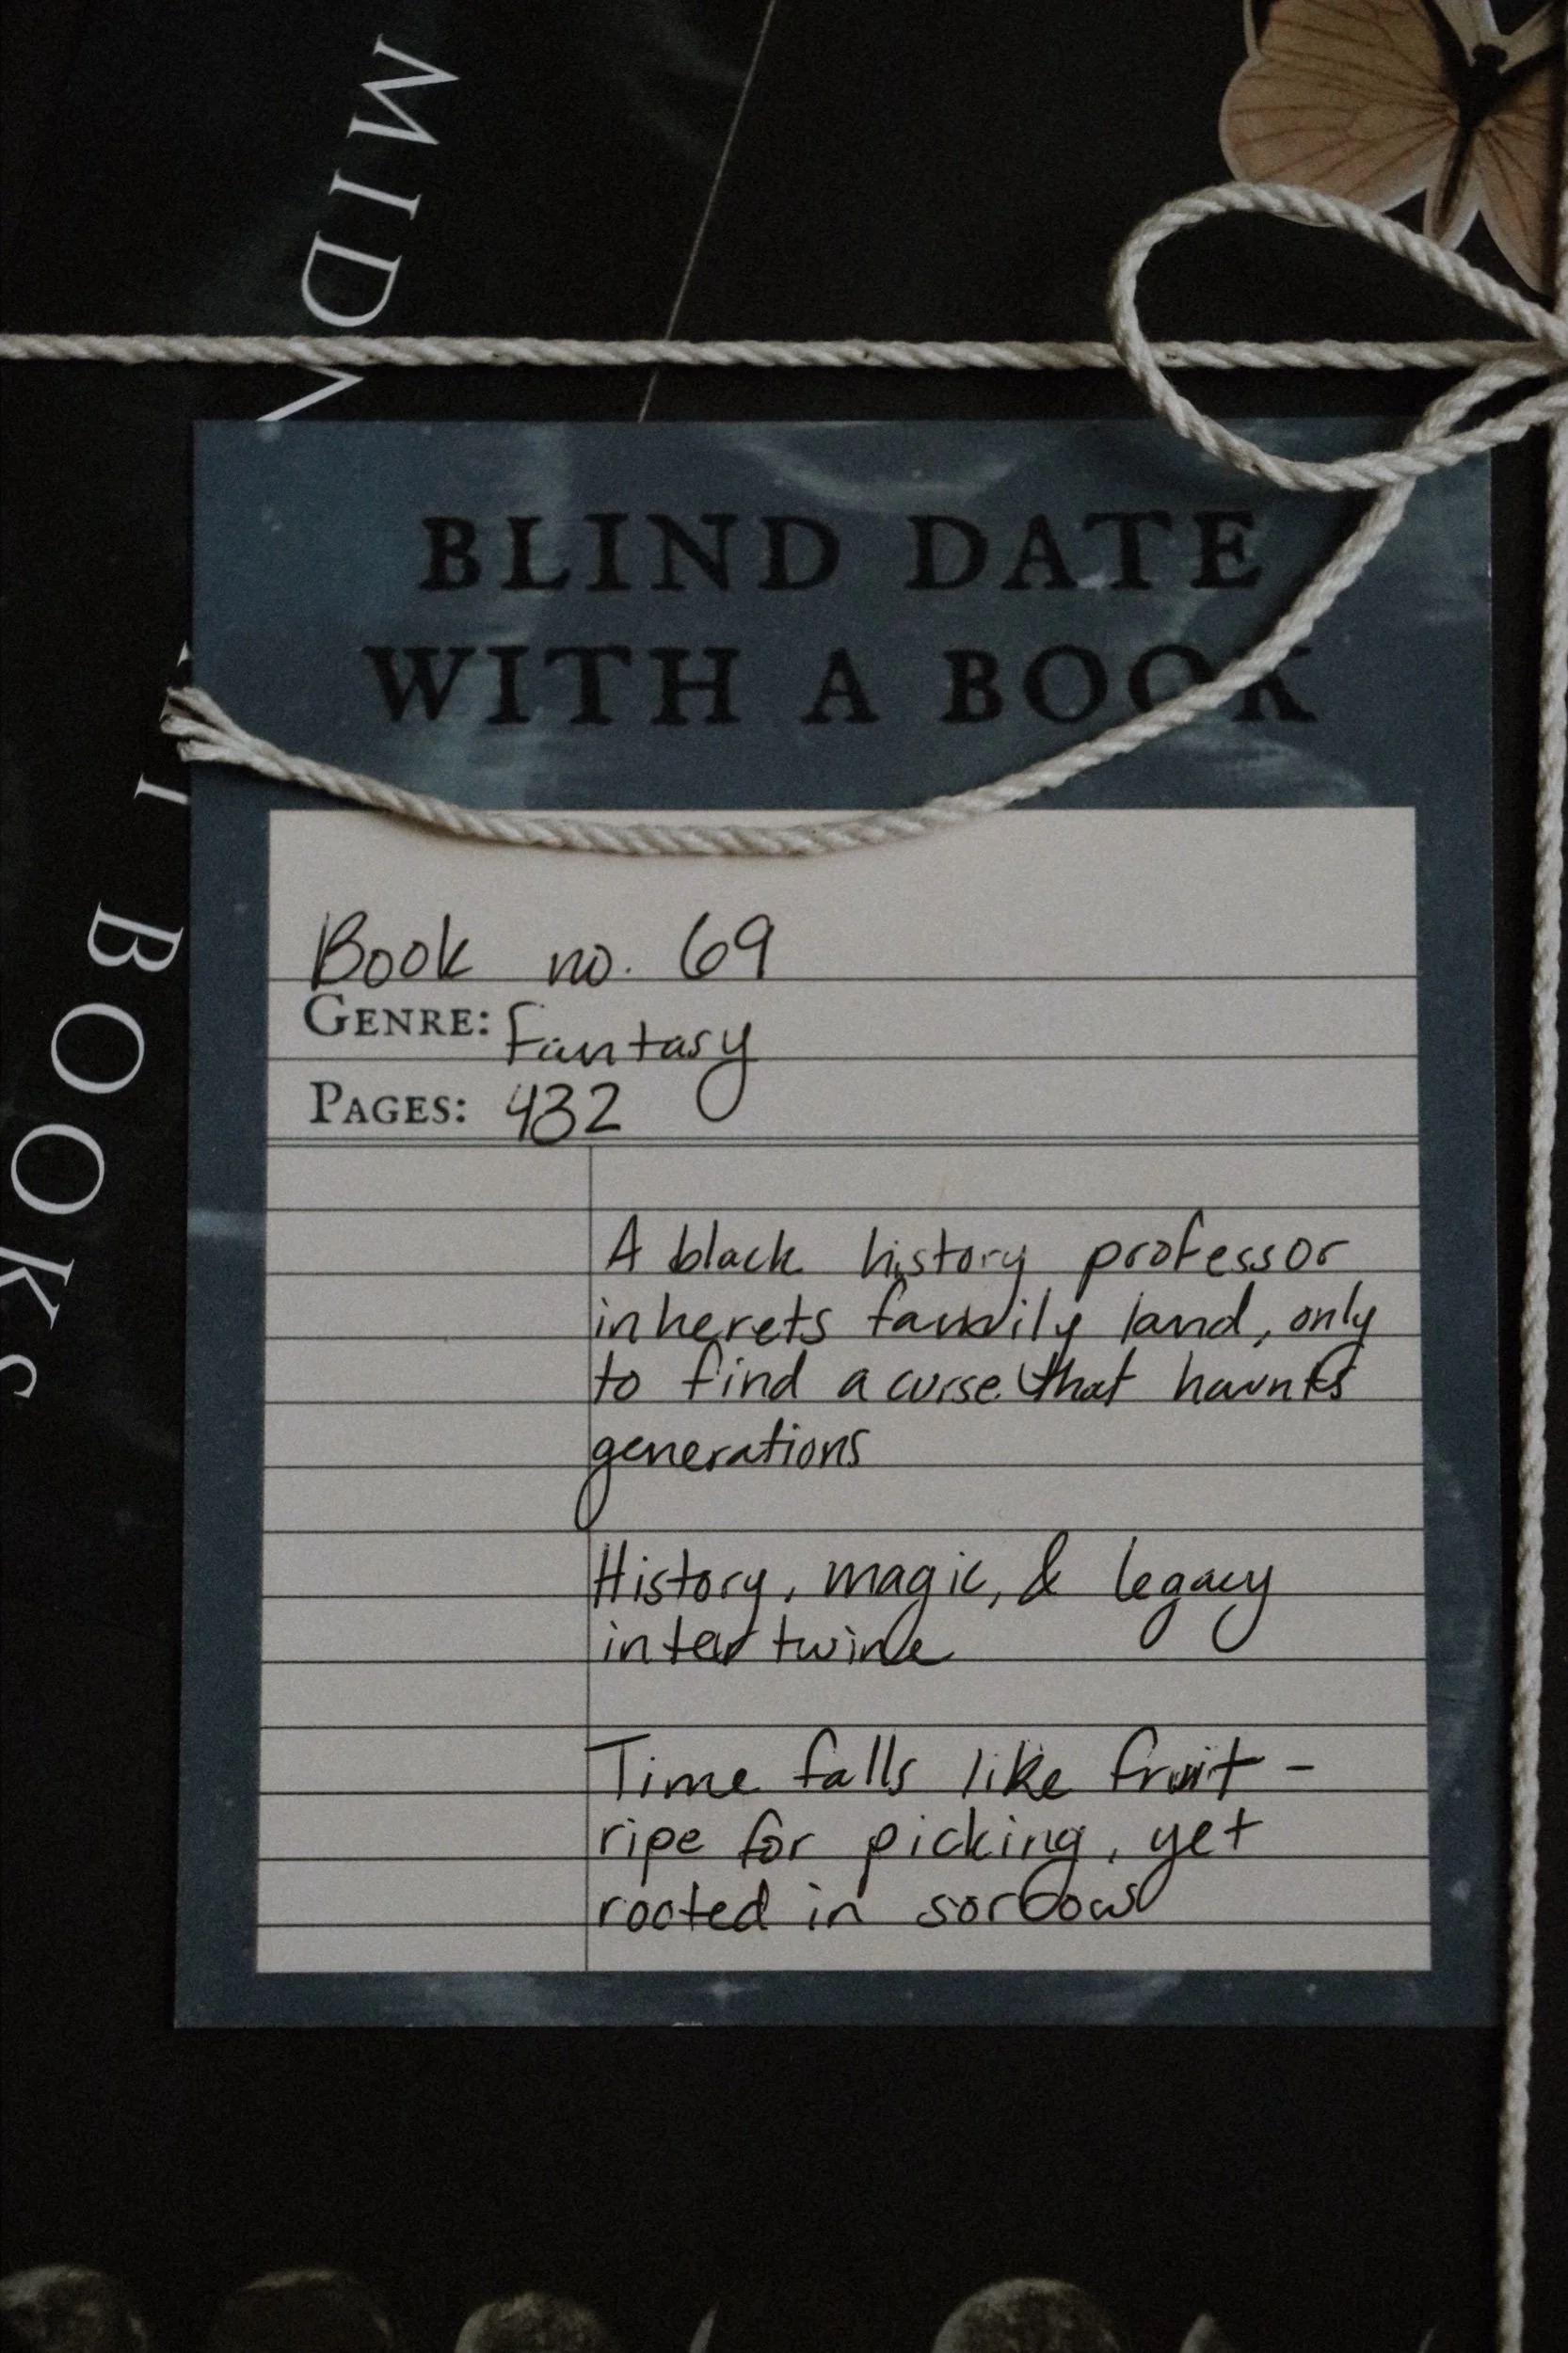 MIDN
BOOKS
BLIND DATE
WITH A BOOK
Book no. 69
GENRE: Fantasy
PAGES: 432
A black history professor
inherets family land, only
to find a curse that haunts
generations
History, magic, & legacy
intertwine
Time falls like fruit -
ripe for picking, yet
rooted in sorrows